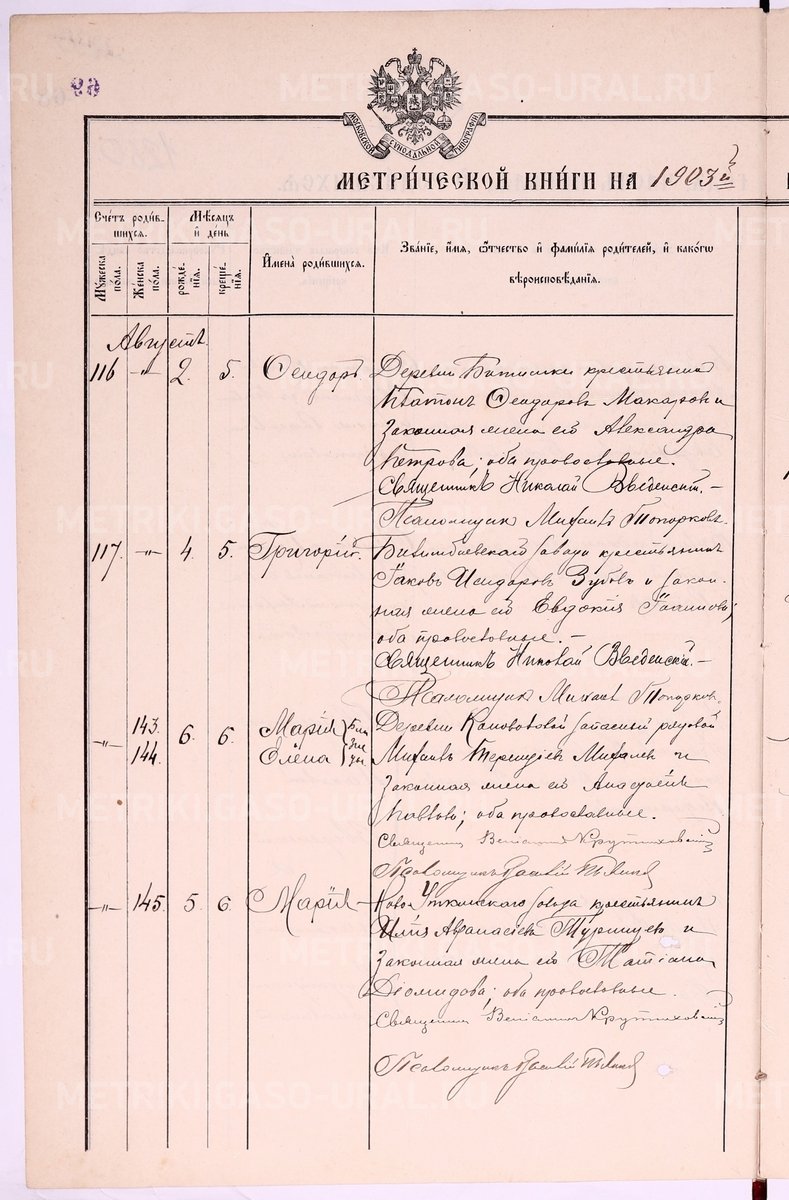 METRIKI.GASO-URAL.RU
МОСКОВСКОЙ СѴНОДАЛЬНОЙ ТИПОГРАФІИ
МЕТРИ́ЧЕСКОЙ КНИ́ГИ НА 1903й
Сче́тъ роди́в-
шихся.
Му́жеска по́ла.
Же́нска по́ла.
Мѣ́сяцъ
и҆ де́нь
рожде́-
нїя.
креще́-
нїя.
И҆мена̀ роди́вшихся.
Зва́нїе, и҆́мя, ѻ҆́тчество и҆ фами́лїя роди́телей, и҆ како́гѡ
вѣроисповѣ́данїя.
Августъ.
116 -"- 2. 5. Ѳеодоръ. Деревни крестьянинъ
Платонъ Ѳеодоровъ Макаровъ и
законная жена его Александра
Петрова; оба православные.
Священникъ Николай Введенскій. —
Псаломщикъ Михаилъ Топорковъ.
117. -"- 4. 5. Григорій. Билимбаевскаго завода крестьянинъ
Іаковъ Исидоровъ Зубовъ и закон-
ная жена его Евдокія Іоаннова;
оба православные. —
Священникъ Николай Введенскій. —
Псаломщикъ Михаилъ Топорковъ.
-"- 143. 144. 6. 6. Марія Елена близнецы Деревни Коноваловой запасный рядовой
Михаилъ Терентіевъ Михалевъ и
законная жена его Анастасія
Павлова; оба православные.
Священникъ Веніаминъ Крутиховскій
Псаломщикъ
-"- 145. 5. 6. Марія — Ново-Уткинскаго завода крестьянинъ
Илія Аѳанасіевъ и
законная жена его Татіана
Діомидова; оба православные.
Священникъ Веніаминъ Крутиховскій
Псаломщикъ